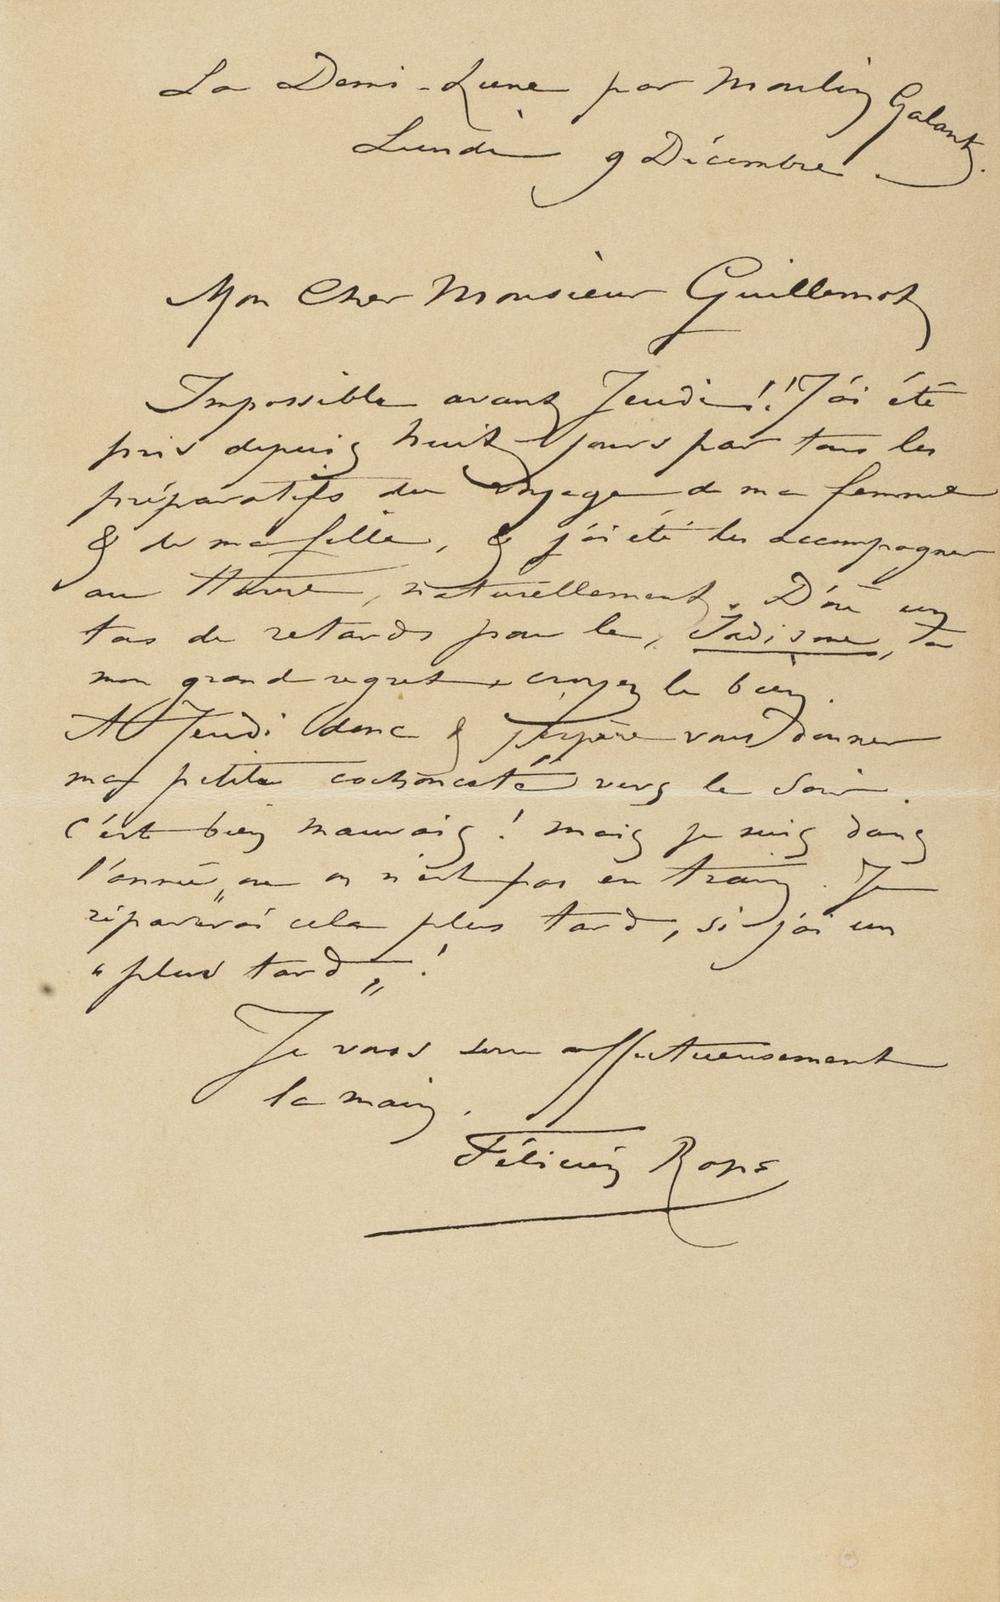 La Demi-Lune par Moulin Galant.
Lundi 9 Décembre
Mon Cher Monsieur Guillemot
Impossible avant Jeudi!! J'ai été
pris depuis huit jours par tous les
préparatifs du voyage de ma femme
& de ma fille, & j'ai été les accompagner
au Havre, naturellement. D'où un
tas de retards pour le „ Sadisme „, à
mon grand regret croyez le bien.
A Jeudi donc & j'espère vous donner
ma petite cochonceté vers le soir.
C'est bien mauvais! mais je suis dans
l'année „ où on n'est pas en train. Je
réparerai cela plus tard, si j'ai un
“ plus tard „ !
Je vous serre affectueusement
la main.
Félicien Rops